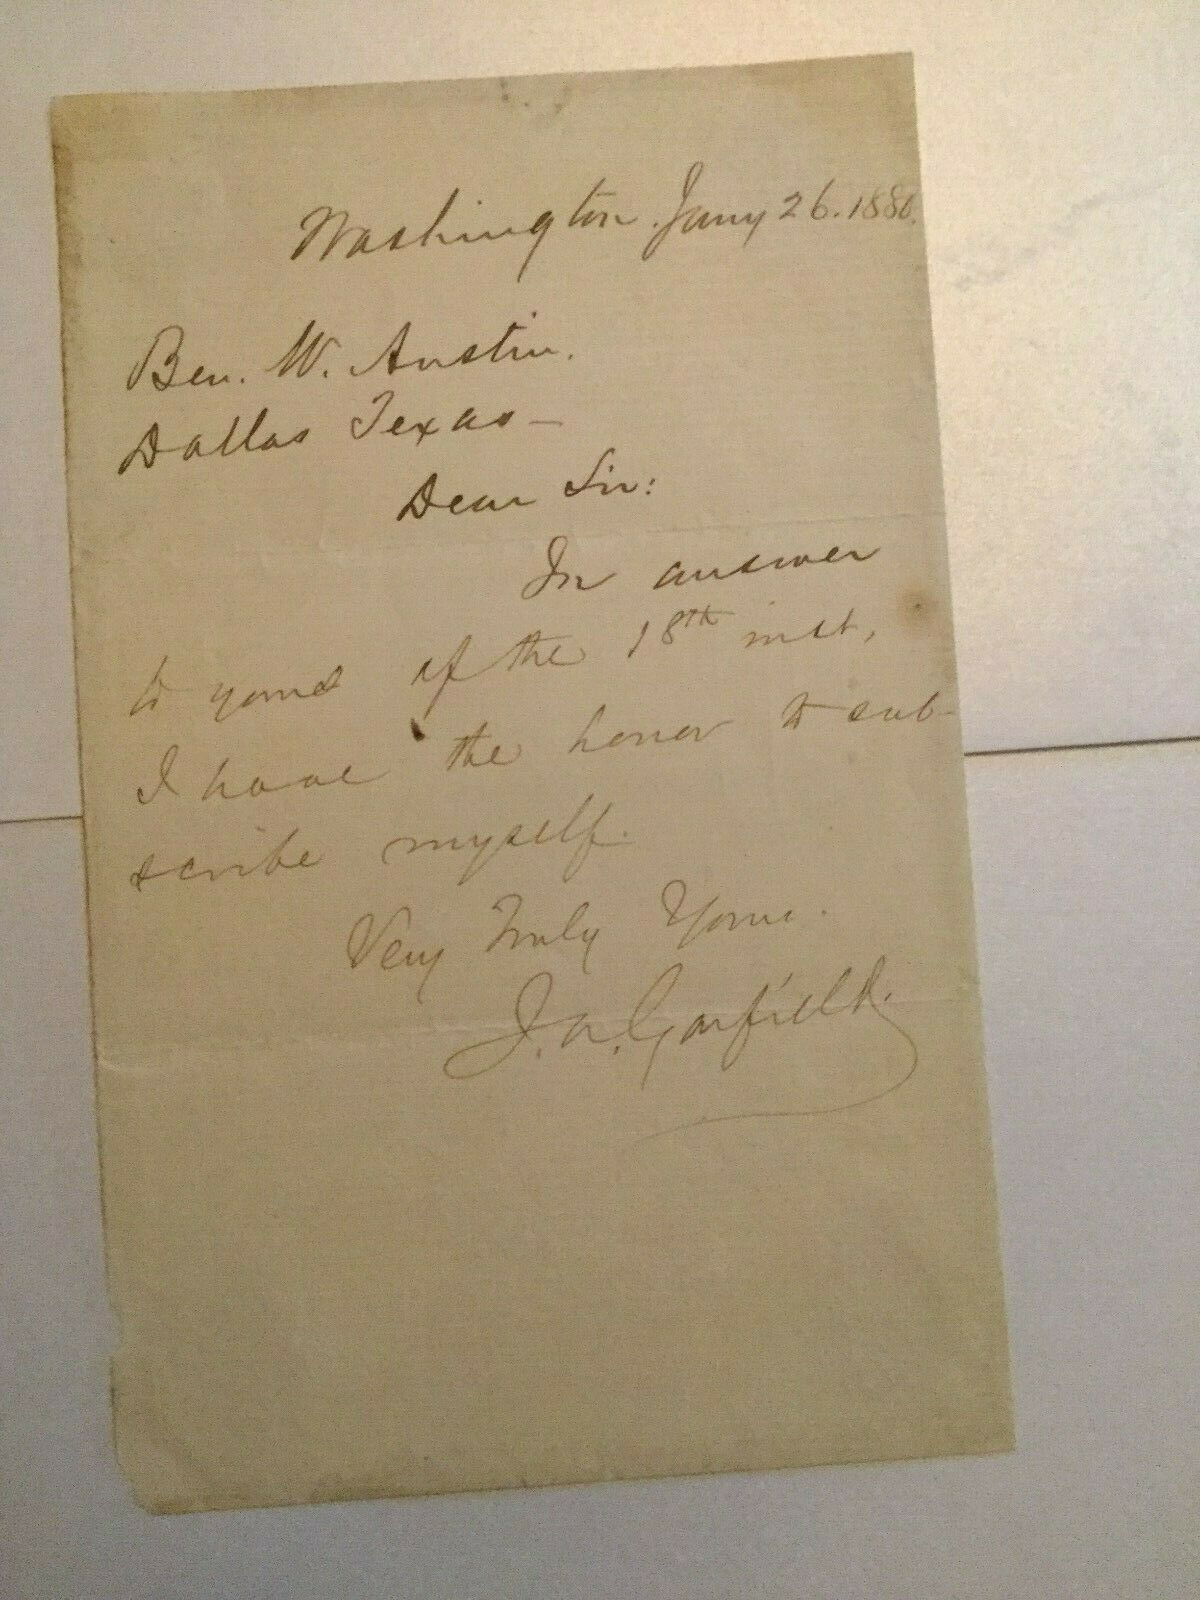 Washington. Jany 26. 1880.
Ben. W. Austin.
Dallas Texas —
Dear Sir:
In answer
to yours of the 18th inst,
I have the honor to sub-
scribe myself.
Very Truly Yours.
J. A. Garfield.